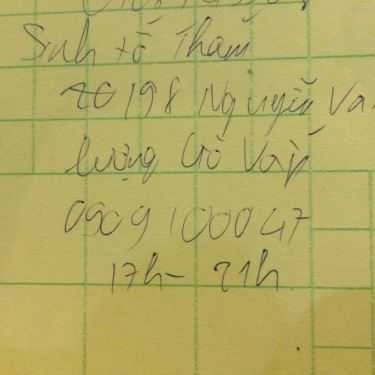 Sinh tố Thắm
20198 Nguyễn Va
lượng Gò Vấp
0909100047
17h - 21h